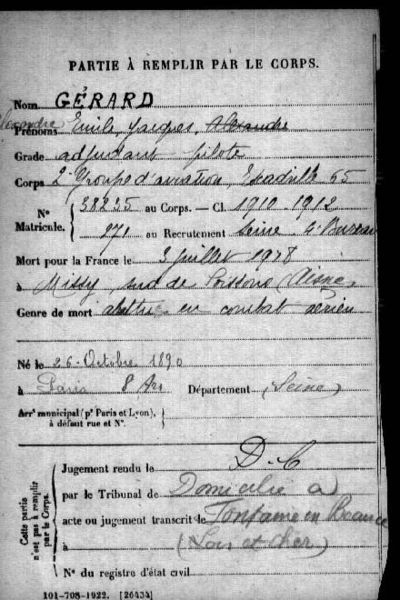 PARTIE À REMPLIR PAR LE CORPS.
Nom GÉRARD
Alexandre
Prénoms Emile, Jacques, Alexandre
Grade adjudant pilote
Corps 2e Groupe d'aviation, Escadrille 65
N° Matricule. 38235 au Corps. — Cl. 1910-1912
971 au Recrutement Seine 4e Bureau
Mort pour la France le 3 juillet 1918
à Missy, sud de Soissons (Aisne)
Genre de mort abattu en combat aérien
Né le 26 Octobre 1890
à Paris 8 Arr Département (Seine)
Arrt municipal (pr Paris et Lyon), à défaut rue et N°.
Cette partie n'est pas à remplir par le Corps.
Jugement rendu le D. C
par le Tribunal de Domicilié à
acte ou jugement transcrit le Fontaine en Beauce
à (Loir et Cher)
N° du registre d'état civil
101-708-1922. [26434]